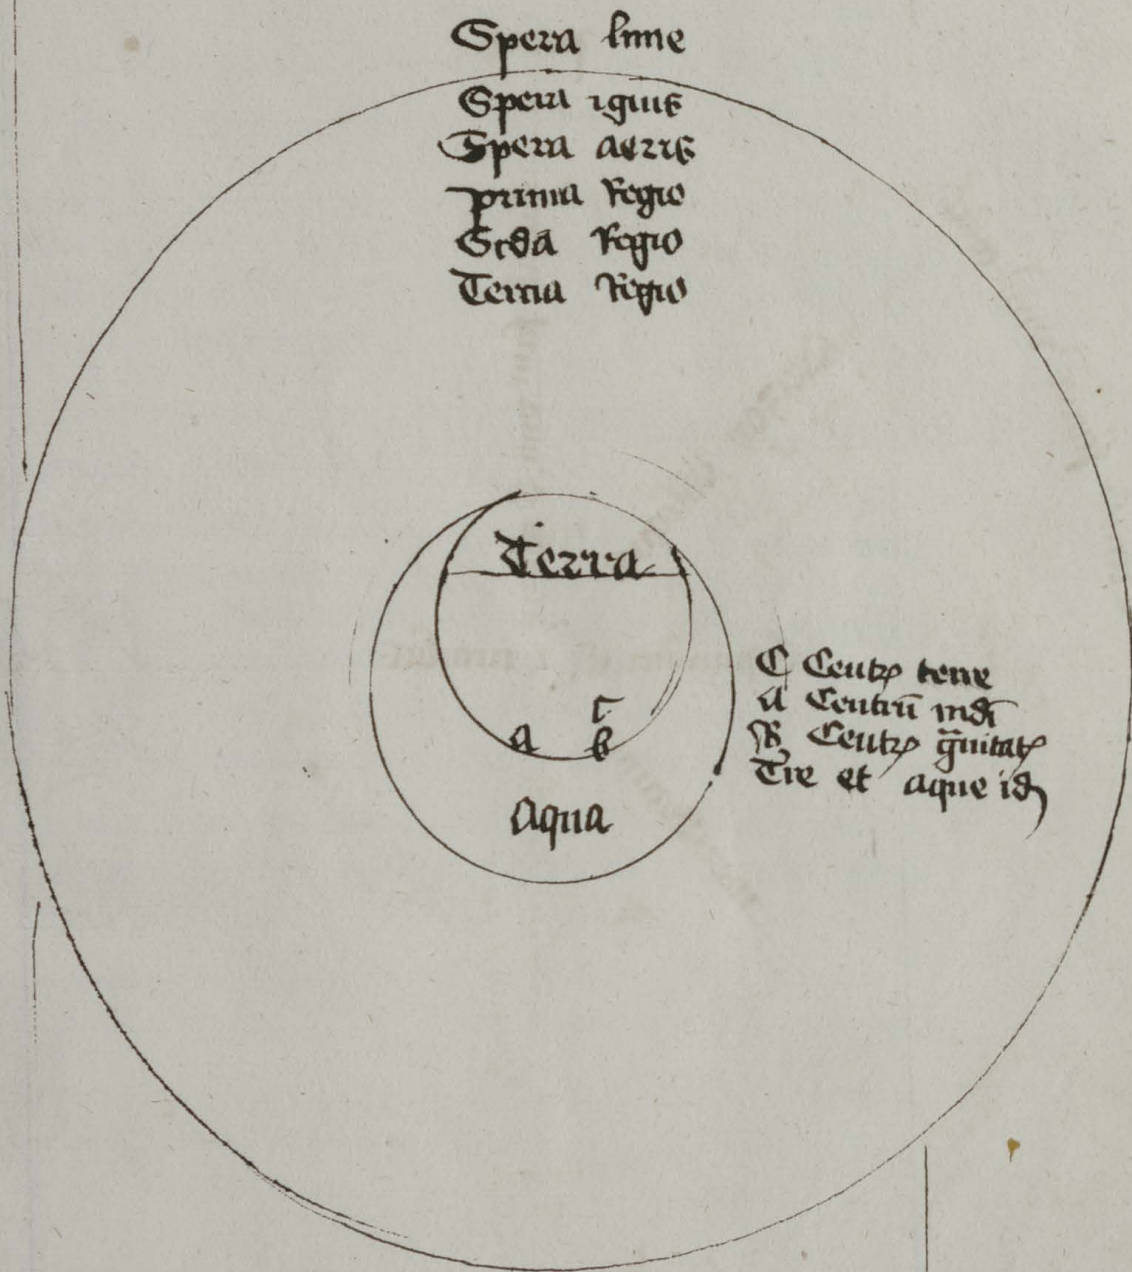 Spera lune
Spera ignis
Spera aeris
prima Regio
Scdā Regio
Tercia Regio
Terra
c
a b
Aqua
C Centrꝝ terre
A Centrū mdī
B Centrꝝ
Tre et aque idꝫ